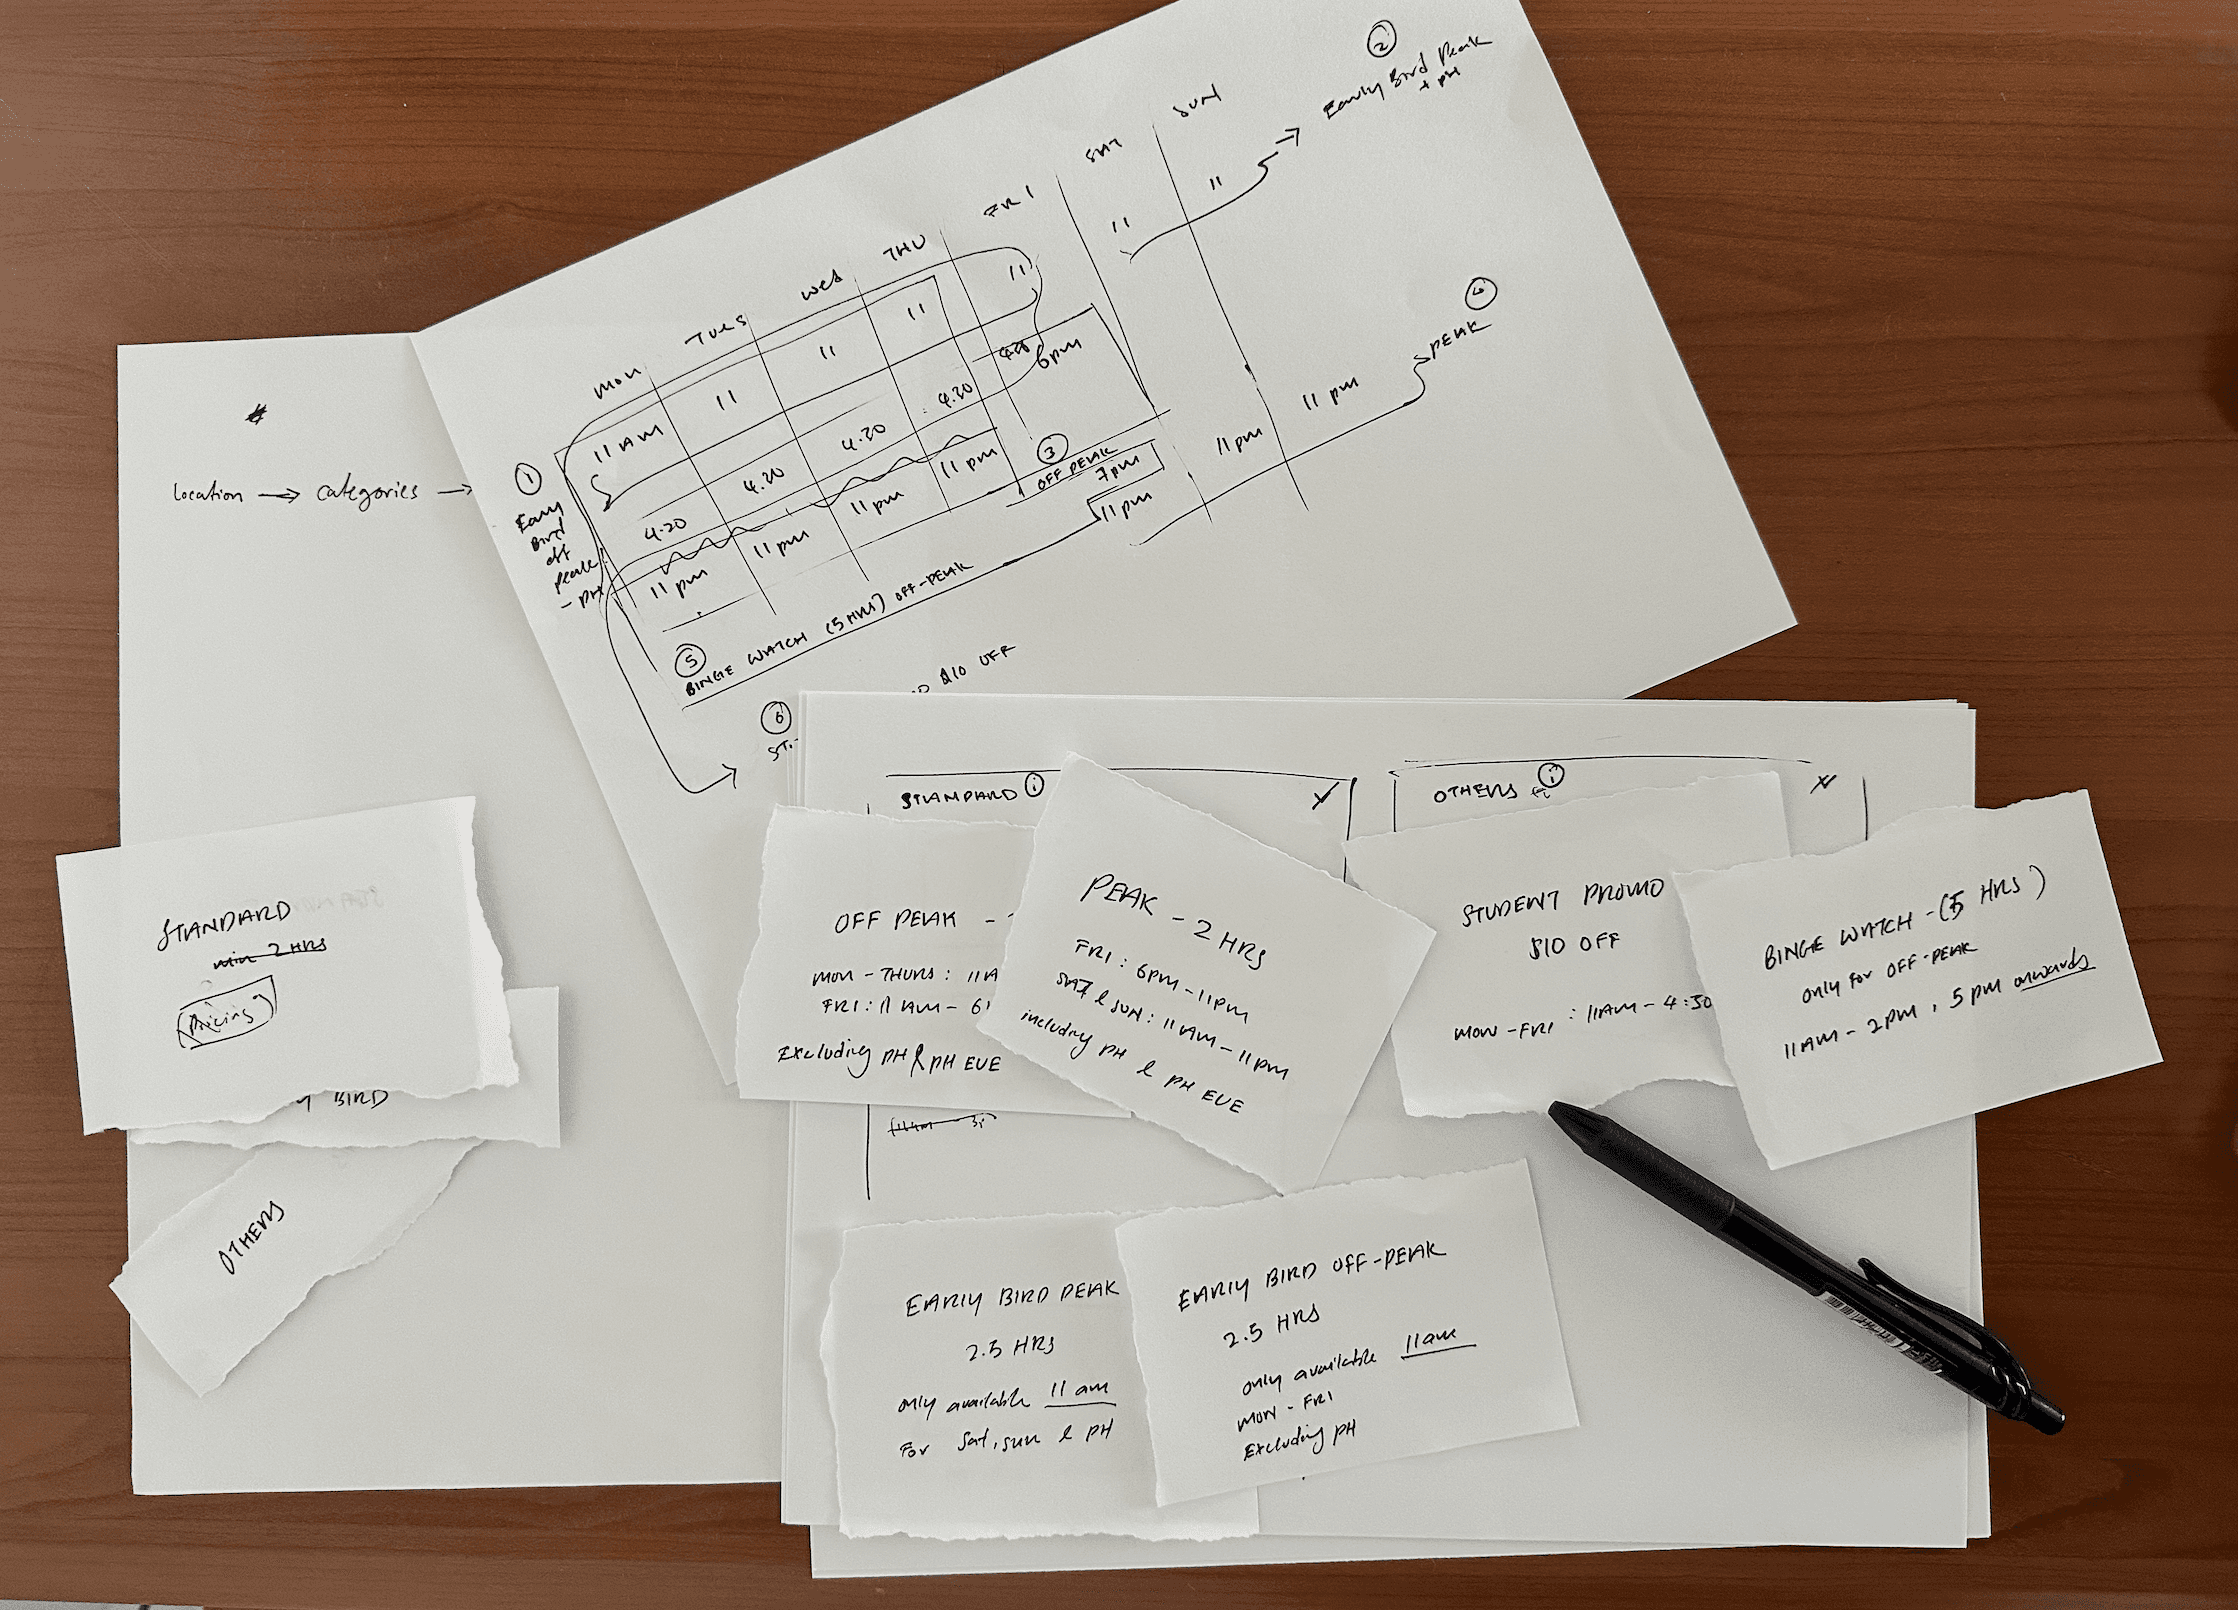 location → categories →
②
Early Bird Peak
+ PH
MON TUES WED THU FRI SAT SUN
①
Early
Bird
off
peak
- PH
11 AM 11 11 11 11 11 11
4.20 4.20 4.20 4.20 6pm
11 pm 11 pm 11 pm 11 pm
③
OFF PEAK
7pm
11pm 11pm 11 pm
④
PEAK
⑤
BINGE WATCH (5 HRS) OFF-PEAK
⑥
$10 OFF
STANDARD
min 2 HRS
(Pricing)
BIRD
OTHERS
STANDARD i
OTHERS i
OFF PEAK -
MON - THURS : 11A
FRI : 11 AM - 6
Excluding PH & PH EVE
PEAK - 2 HRS
FRI : 6PM - 11PM
SAT & SUN : 11AM - 11PM
including PH & PH EVE
STUDENT PROMO
$10 OFF
MON - FRI : 11AM - 4:30
BINGE WATCH - (5 HRS)
only for OFF-PEAK
11AM - 2PM, 5 pm onwards
EARLY BIRD PEAK
2.5 HRS
only available 11 am
For Sat, Sun & PH
EARLY BIRD OFF-PEAK
2.5 HRS
only available 11am
MON - FRI
Excluding PH